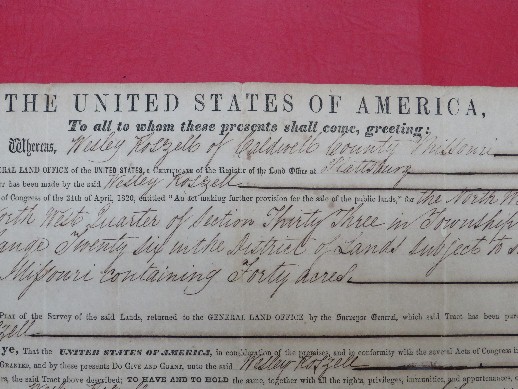 THE UNITED STATES OF AMERICA,
To all to whom these presents shall come, greeting:
Whereas, Wesley Koszell of Caldwell County Missouri
RAL LAND OFFICE OF THE UNITED STATES, a Certificate of the Register of the Land Office at Plattsburg
er has been made by the said Wesley Koszell
of Congress of the 24th of April, 1820, entitled "An act making further provision for the sale of the public lands," for the North W
orth West Quarter of Section Thirty Three in Township
ange Twenty six in the District of Lands subject to s
Missouri containing Forty acres
PLAT of the Survey of the said Lands, returned to the GENERAL LAND OFFICE by the Surveyor General, which said Tract has been pur
zell
ye, That the UNITED STATES OF AMERICA, in consideration of the premises, and in conformity with the several Acts of Congress in
GRANTED, and by these presents DO GIVE AND GRANT, unto the said Wesley Koszell
s, the said Tract above described; TO HAVE AND TO HOLD the same, together with all the rights, privileges, immunities, and appurtenances, o